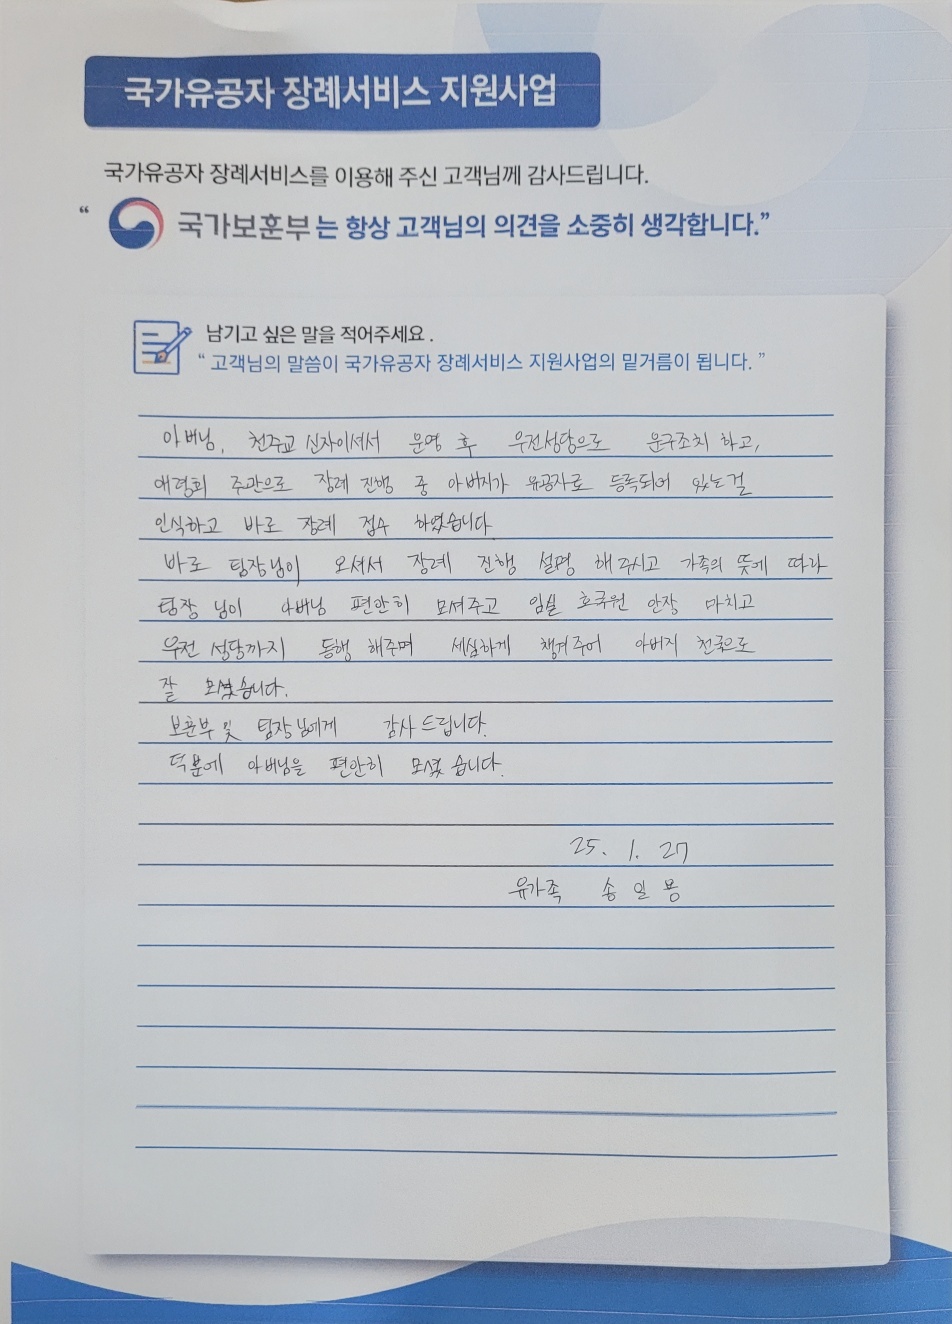 국가유공자 장례서비스 지원사업
국가유공자 장례서비스를 이용해 주신 고객님께 감사드립니다.
“ 국가보훈부는 항상 고객님의 의견을 소중히 생각합니다.”
남기고 싶은 말을 적어주세요.
“ 고객님의 말씀이 국가유공자 장례서비스 지원사업의 밑거름이 됩니다. ”
아버님, 천주교 신자이셔서 운명 후 우전성당으로 운구조치 하고,
애령회 주관으로 장례 진행 중 아버지가 유공자로 등록되어 있는걸
인식하고 바로 장례 접수 하였습니다.
바로 팀장님이 오셔서 장례 진행 설명 해주시고 가족의 뜻에 따라
팀장 님이 아버님 편안히 모셔주고 임실 호국원 안장 마치고
우전 성당까지 동행 해주며 세심하게 챙겨주어 아버지 천국으로
잘 모셨습니다.
보훈부 및 팀장님에게 감사드립니다.
덕분에 아버님을 편안히 모셨습니다.
25. 1. 27
유가족 송 일